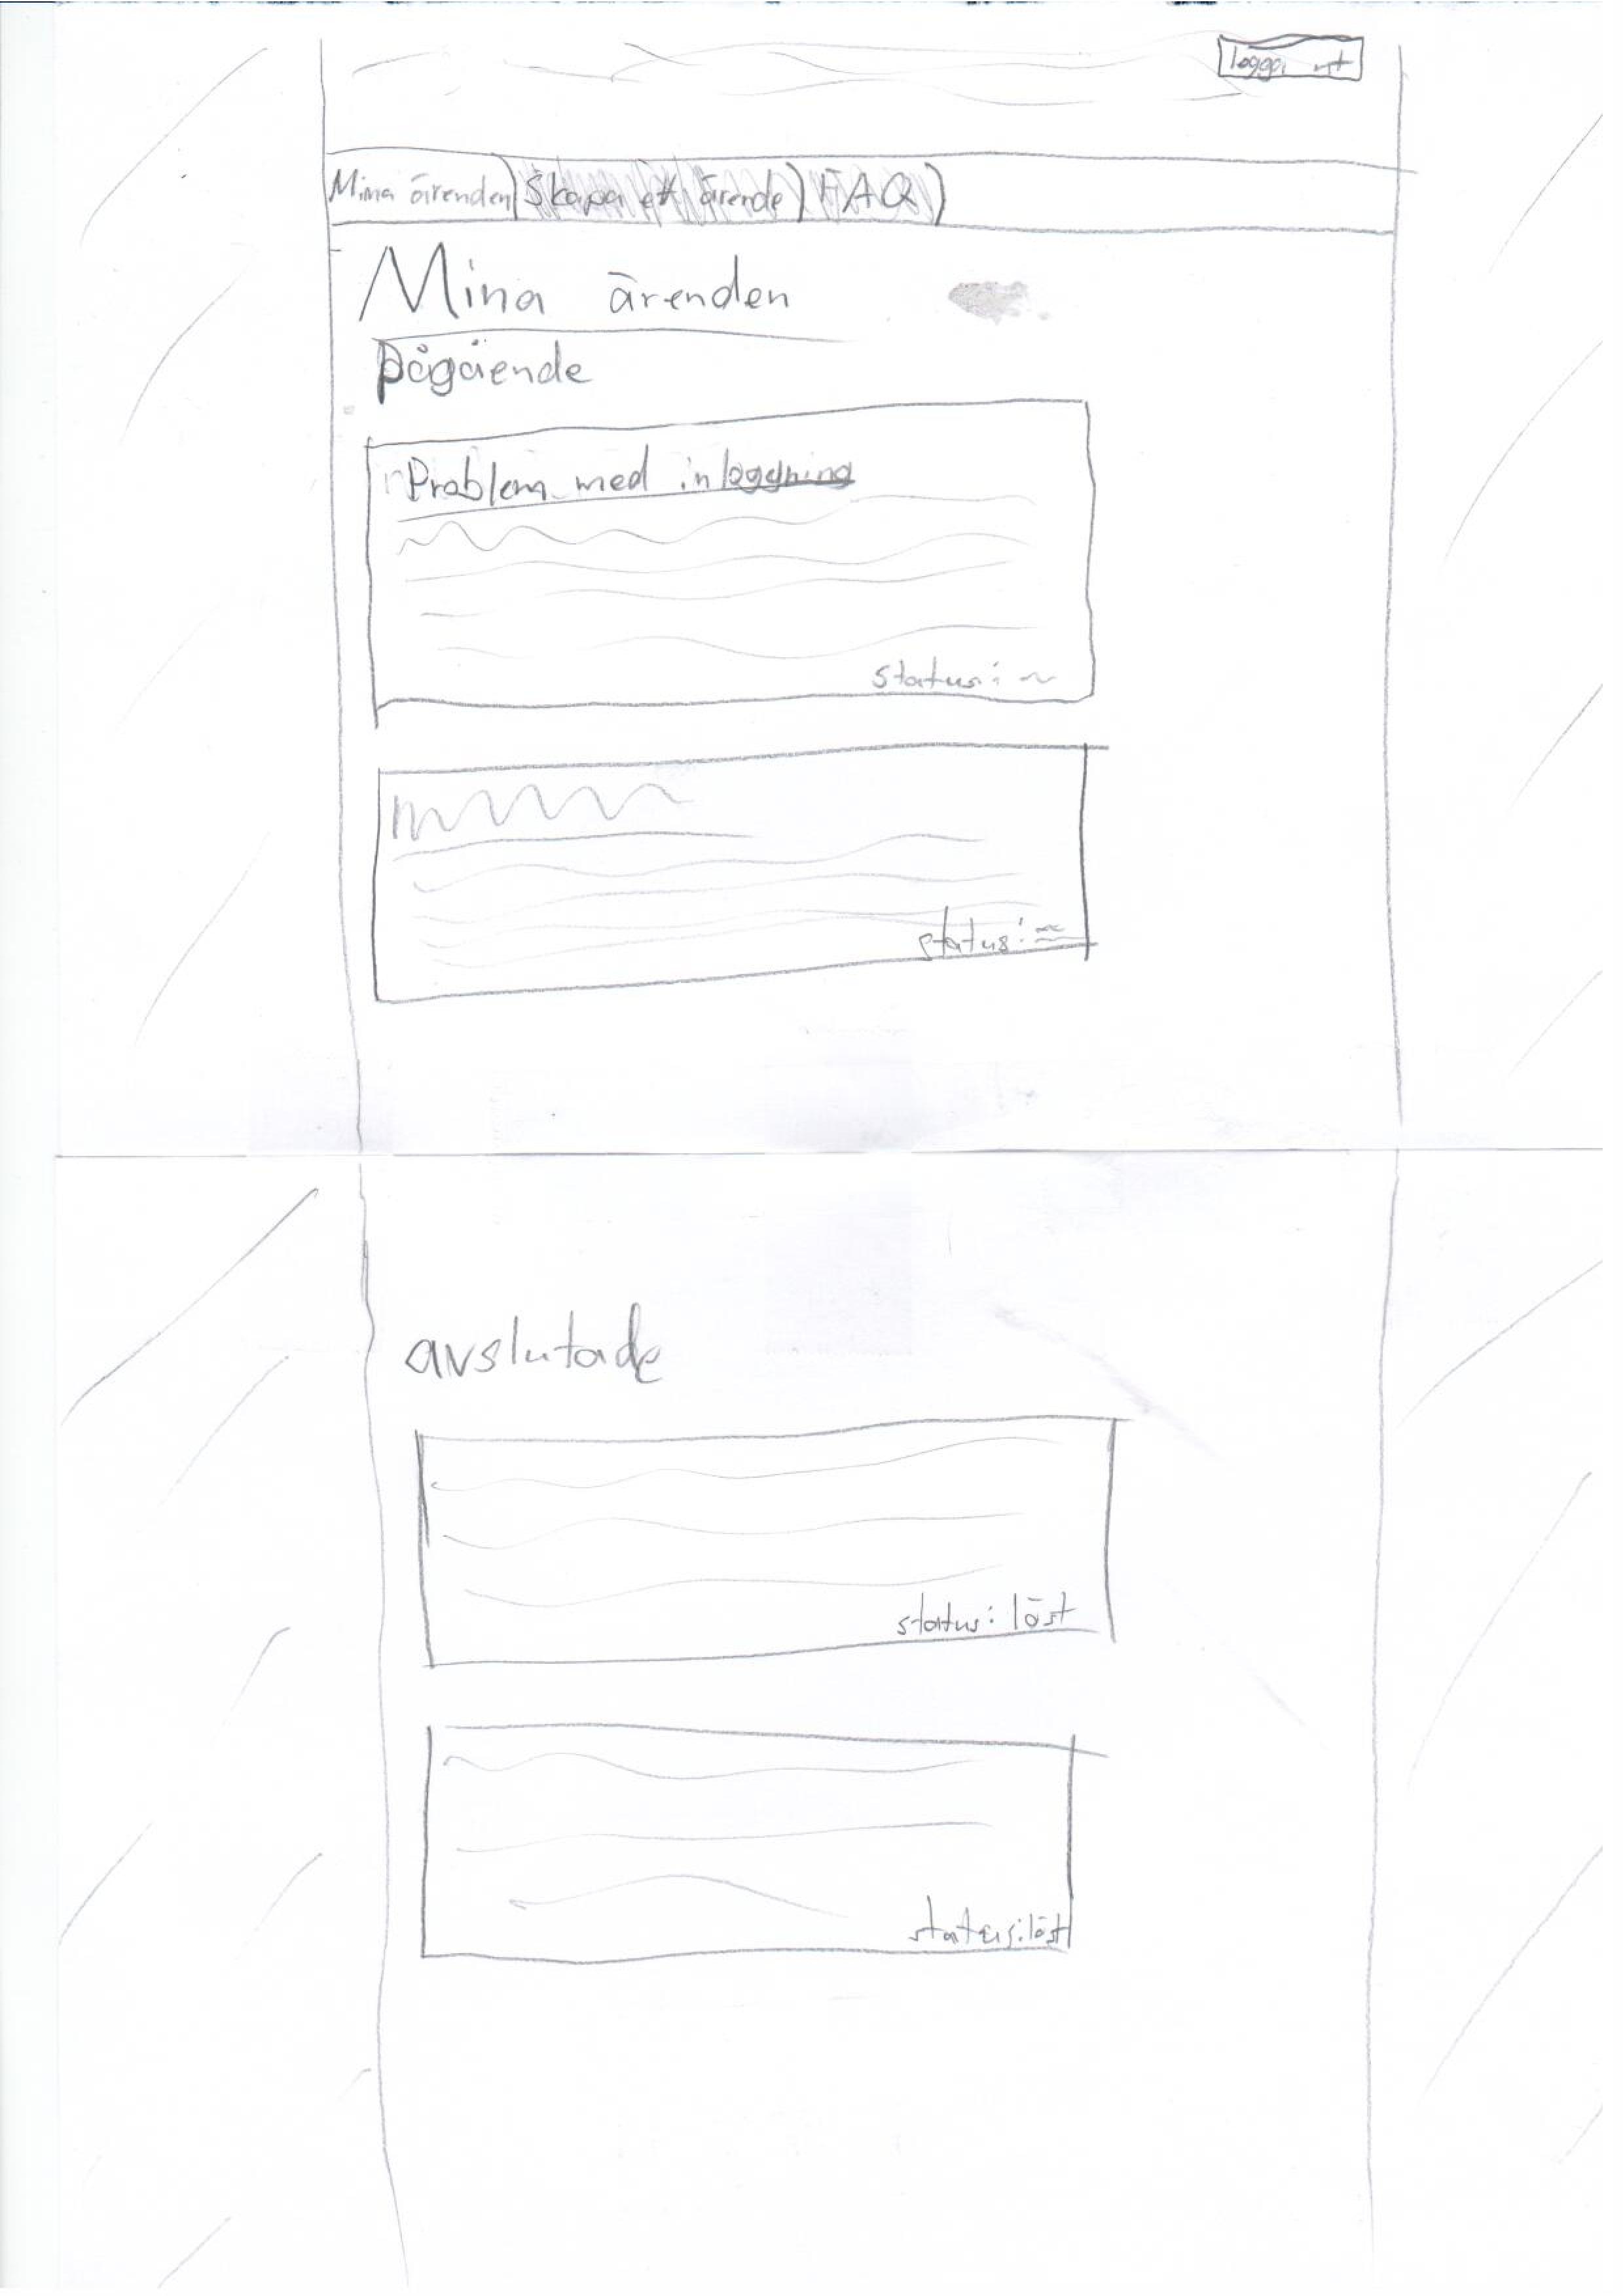 logga ut
Mina ärenden Skapa ett ärende FAQ
Mina ärenden
Pågående
Problem med inloggning
status:
status:
avslutade
status: löst
status: löst